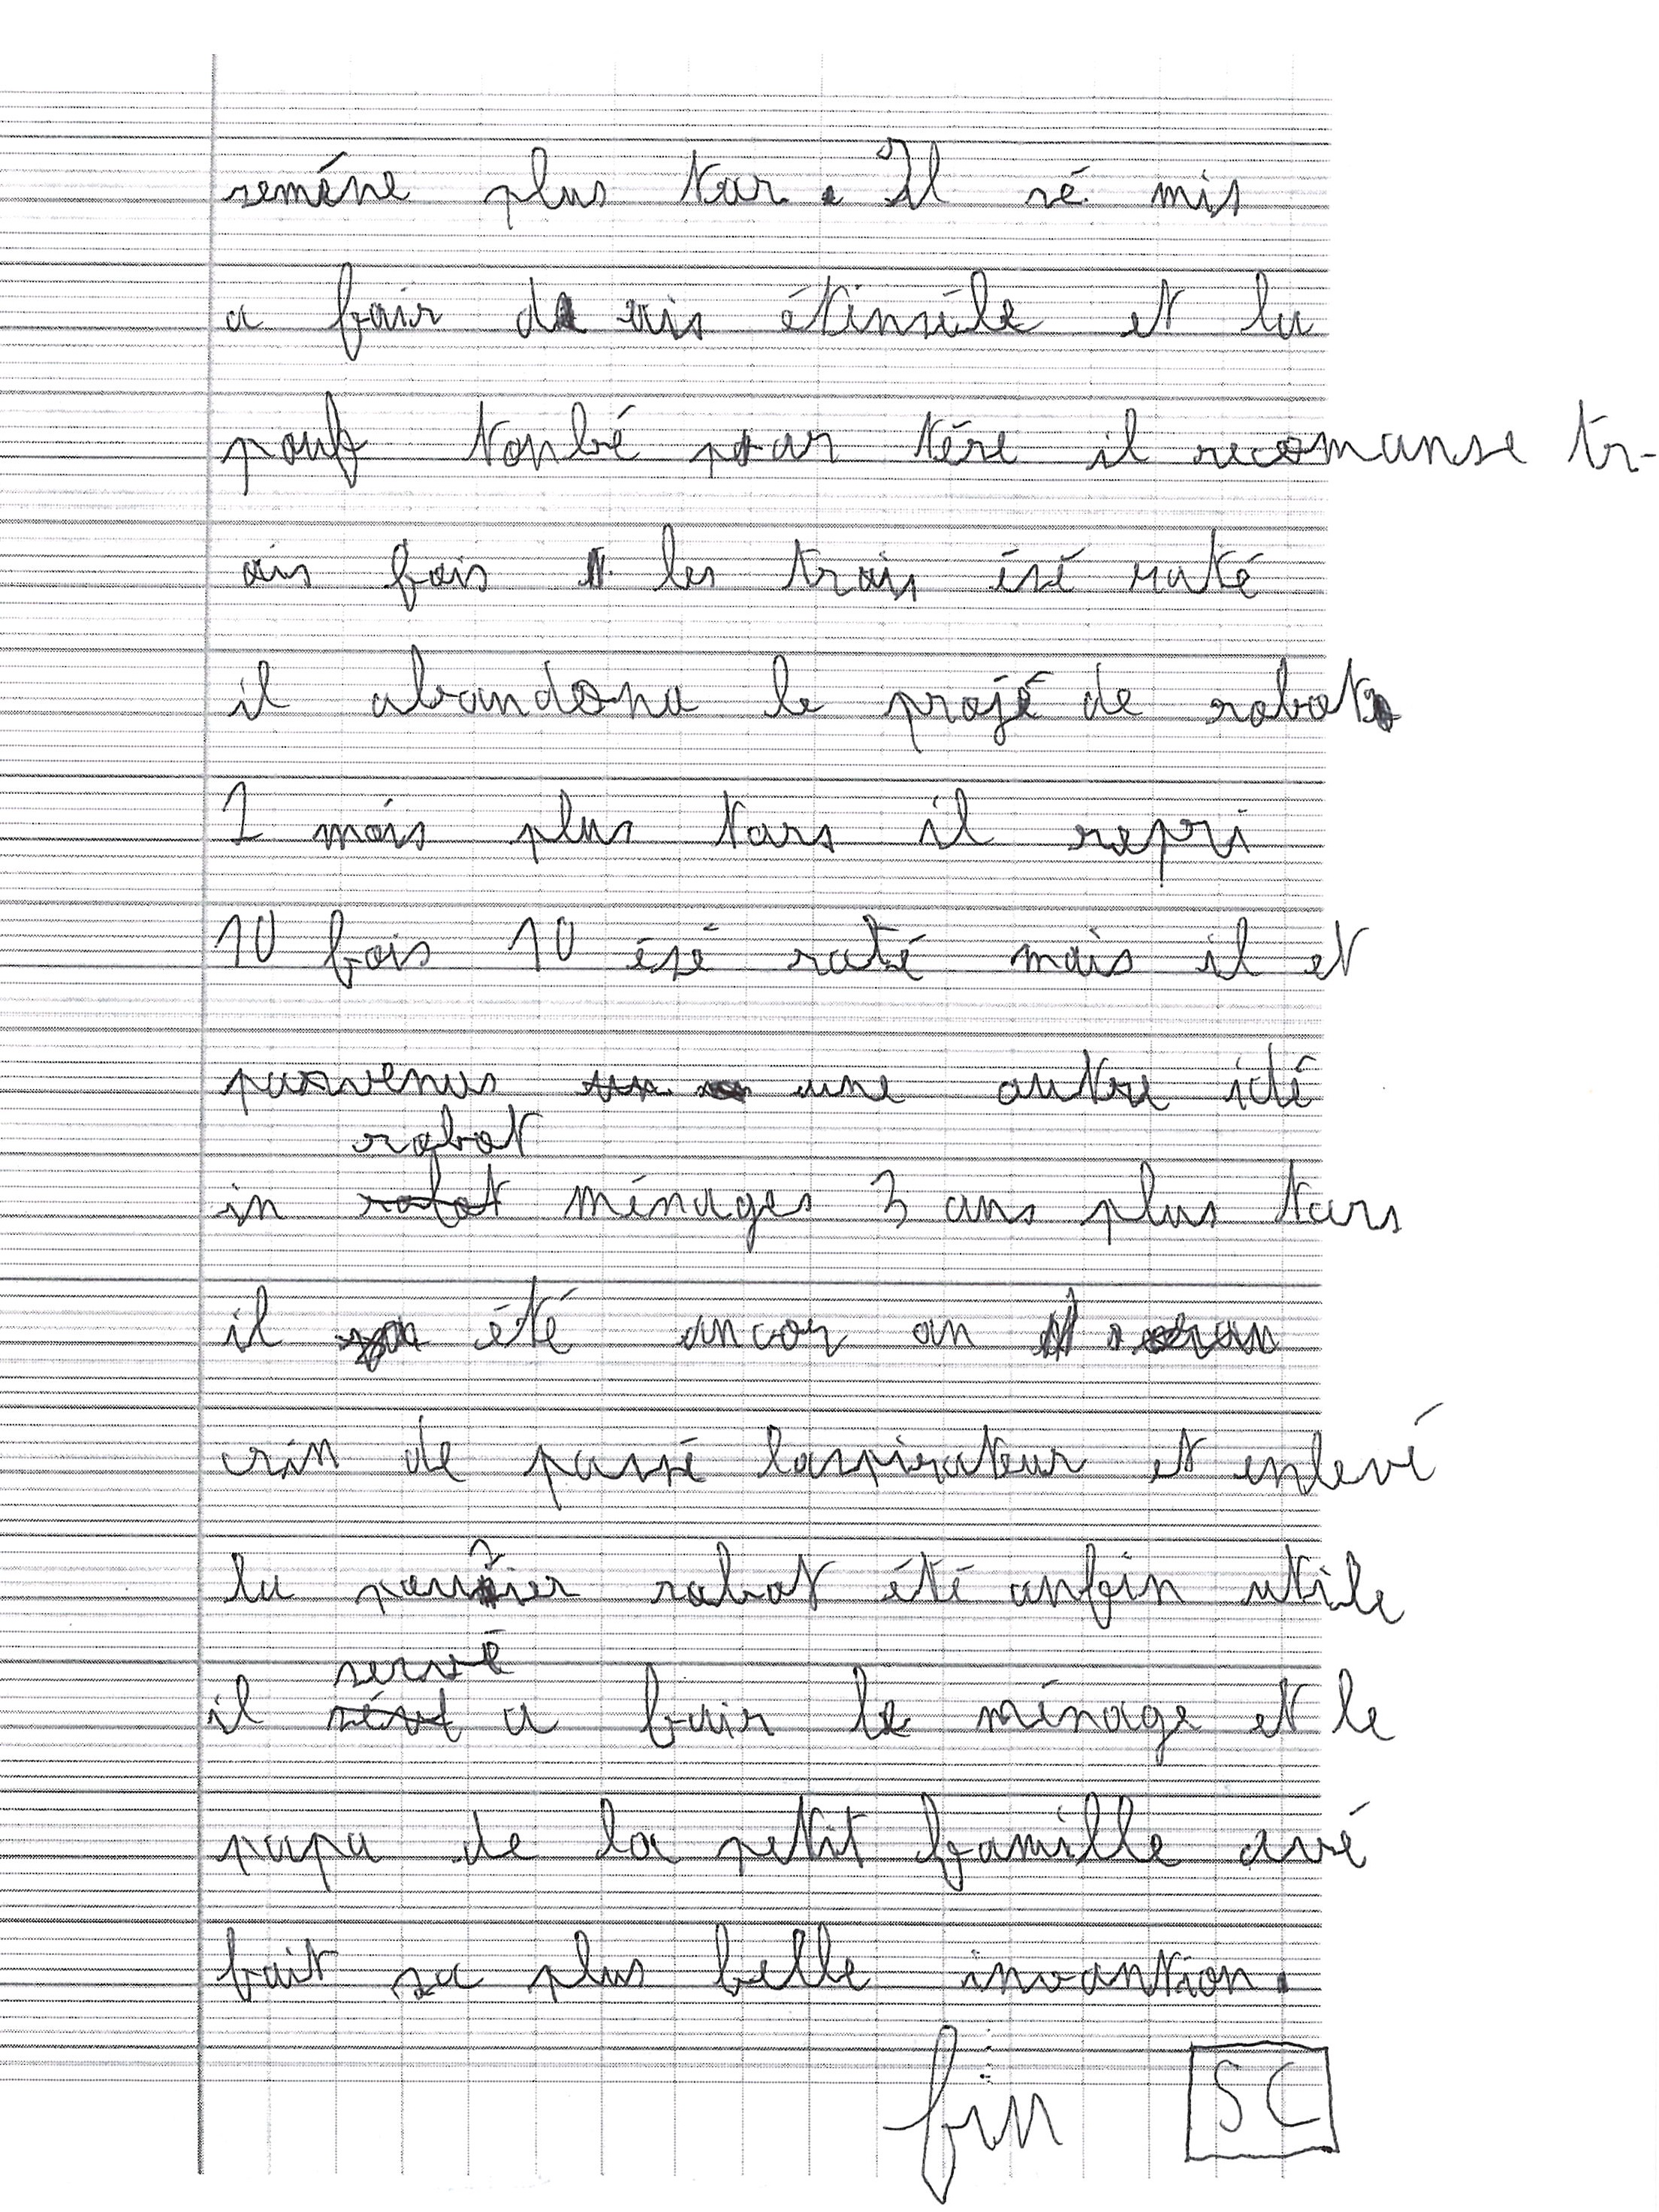 seméne plus tar. Il sé mis
a fair de ais étinséle et la
pouf tonbé par tére il recomanse tr-
ois fois les trois ésé raté
il abandona le projé de robot
2 mois plus tars il repri
10 fois 10 ésé raté mais il et
parvenus une autre idé
robot
in robot ménages 3 ans plus tars
il été ancor an
crin de passé laspirateur et enlevé
la pousier robot été anfin utile
servé
il a fair le ménage et le
papa de la petit famille avé
fait sa plus belle invantion.
fin SC